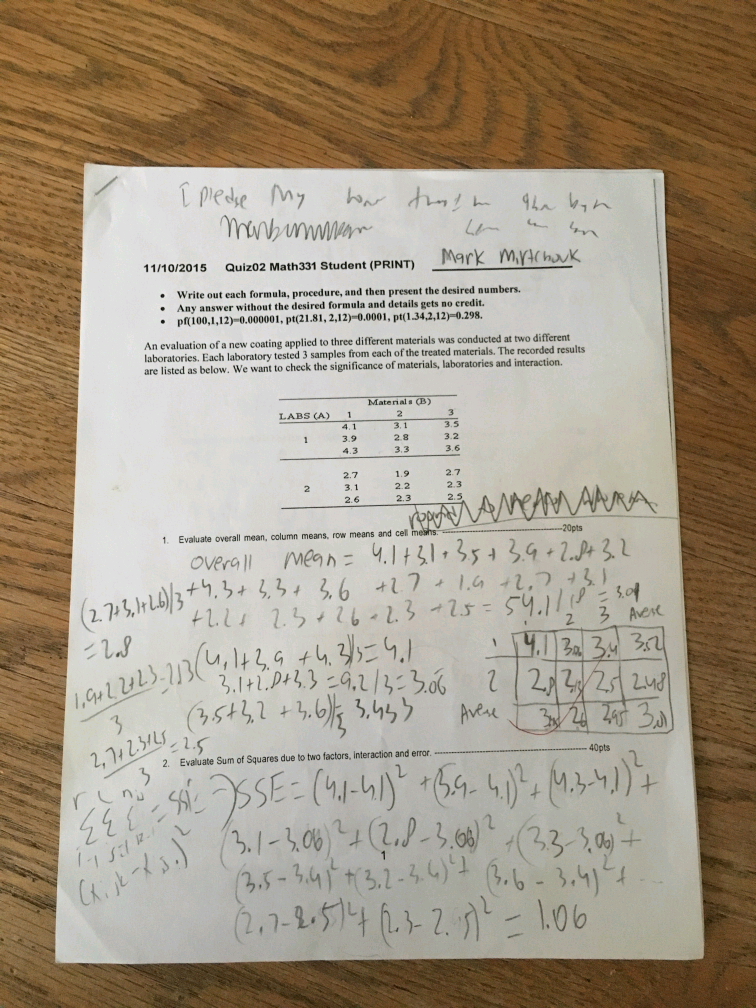 I pledge My
11/10/2015 Quiz02 Math331 Student (PRINT) Mark Mirtchouk
• Write out each formula, procedure, and then present the desired numbers.
• Any answer without the desired formula and details gets no credit.
• pf(100,1,12)=0.000001, pt(21.81, 2,12)=0.0001, pt(1.34,2,12)=0.298.
An evaluation of a new coating applied to three different materials was conducted at two different
laboratories. Each laboratory tested 3 samples from each of the treated materials. The recorded results
are listed as below. We want to check the significance of materials, laboratories and interaction.
Materials (B)
LABS (A) 1 2 3
4.1 3.1 3.5
1 3.9 2.8 3.2
4.3 3.3 3.6
2.7 1.9 2.7
2 3.1 2.2 2.3
2.6 2.3 2.5
1. Evaluate overall mean, column means, row means and cell means. 20pts
overall mean = 4.1+3.1+3.5+3.9+2.8+3.2
+4.3+3.3+3.6+2.7+1.9+2.7+3.1
+2.2+2.3+2.6+2.3+2.5=54.1/18=3.01
(2.7+3.1+2.6)/3
=2.8
(4.1+3.9+4.3)/3=4.1
3.1+2.8+3.3=9.2/3=3.06
(3.5+3.2+3.6)/3=3.433
3
2.7+2.3+2.5=2.5
3
2 3
1 4.1 3.06 3.4 3.52
2 2.8 2.5 2.48
2.6 2.95 3.01
2. Evaluate Sum of Squares due to two factors, interaction and error. 40pts
SSE=(4.1-4.1)²+(3.9-4.1)²+(4.3-4.1)²+
(3.1-3.06)²+(2.8-3.06)²+(3.3-3.06)²+
1
(3.5-3.4)²+(3.2-3.4)²+(3.6-3.4)²+...
(2.7-2.5)²+(2.3-2.5)²=1.06